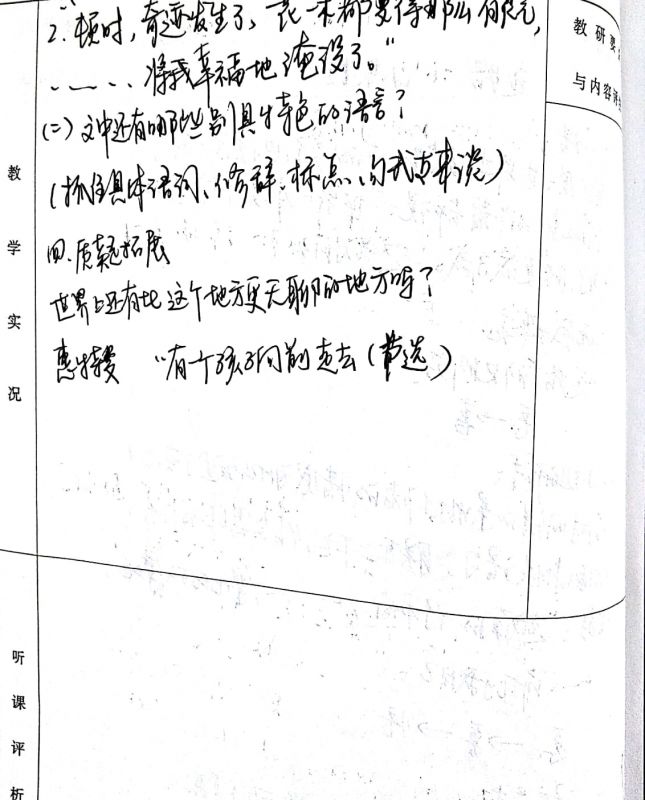 2. 顿时,奇迹发生了,花一木都变得那么有灵,
......将我幸福地淹没了。"
(二)文中还有哪些别具特色的语言?
(抓住具体语词、修辞、标点、句式等来谈)
四、质疑拓展
世界上还有比这个地方更无聊的地方吗?
惠特曼 "有一个孩子向前走去(节选)
教研要
与内容
教学实况
听课评析